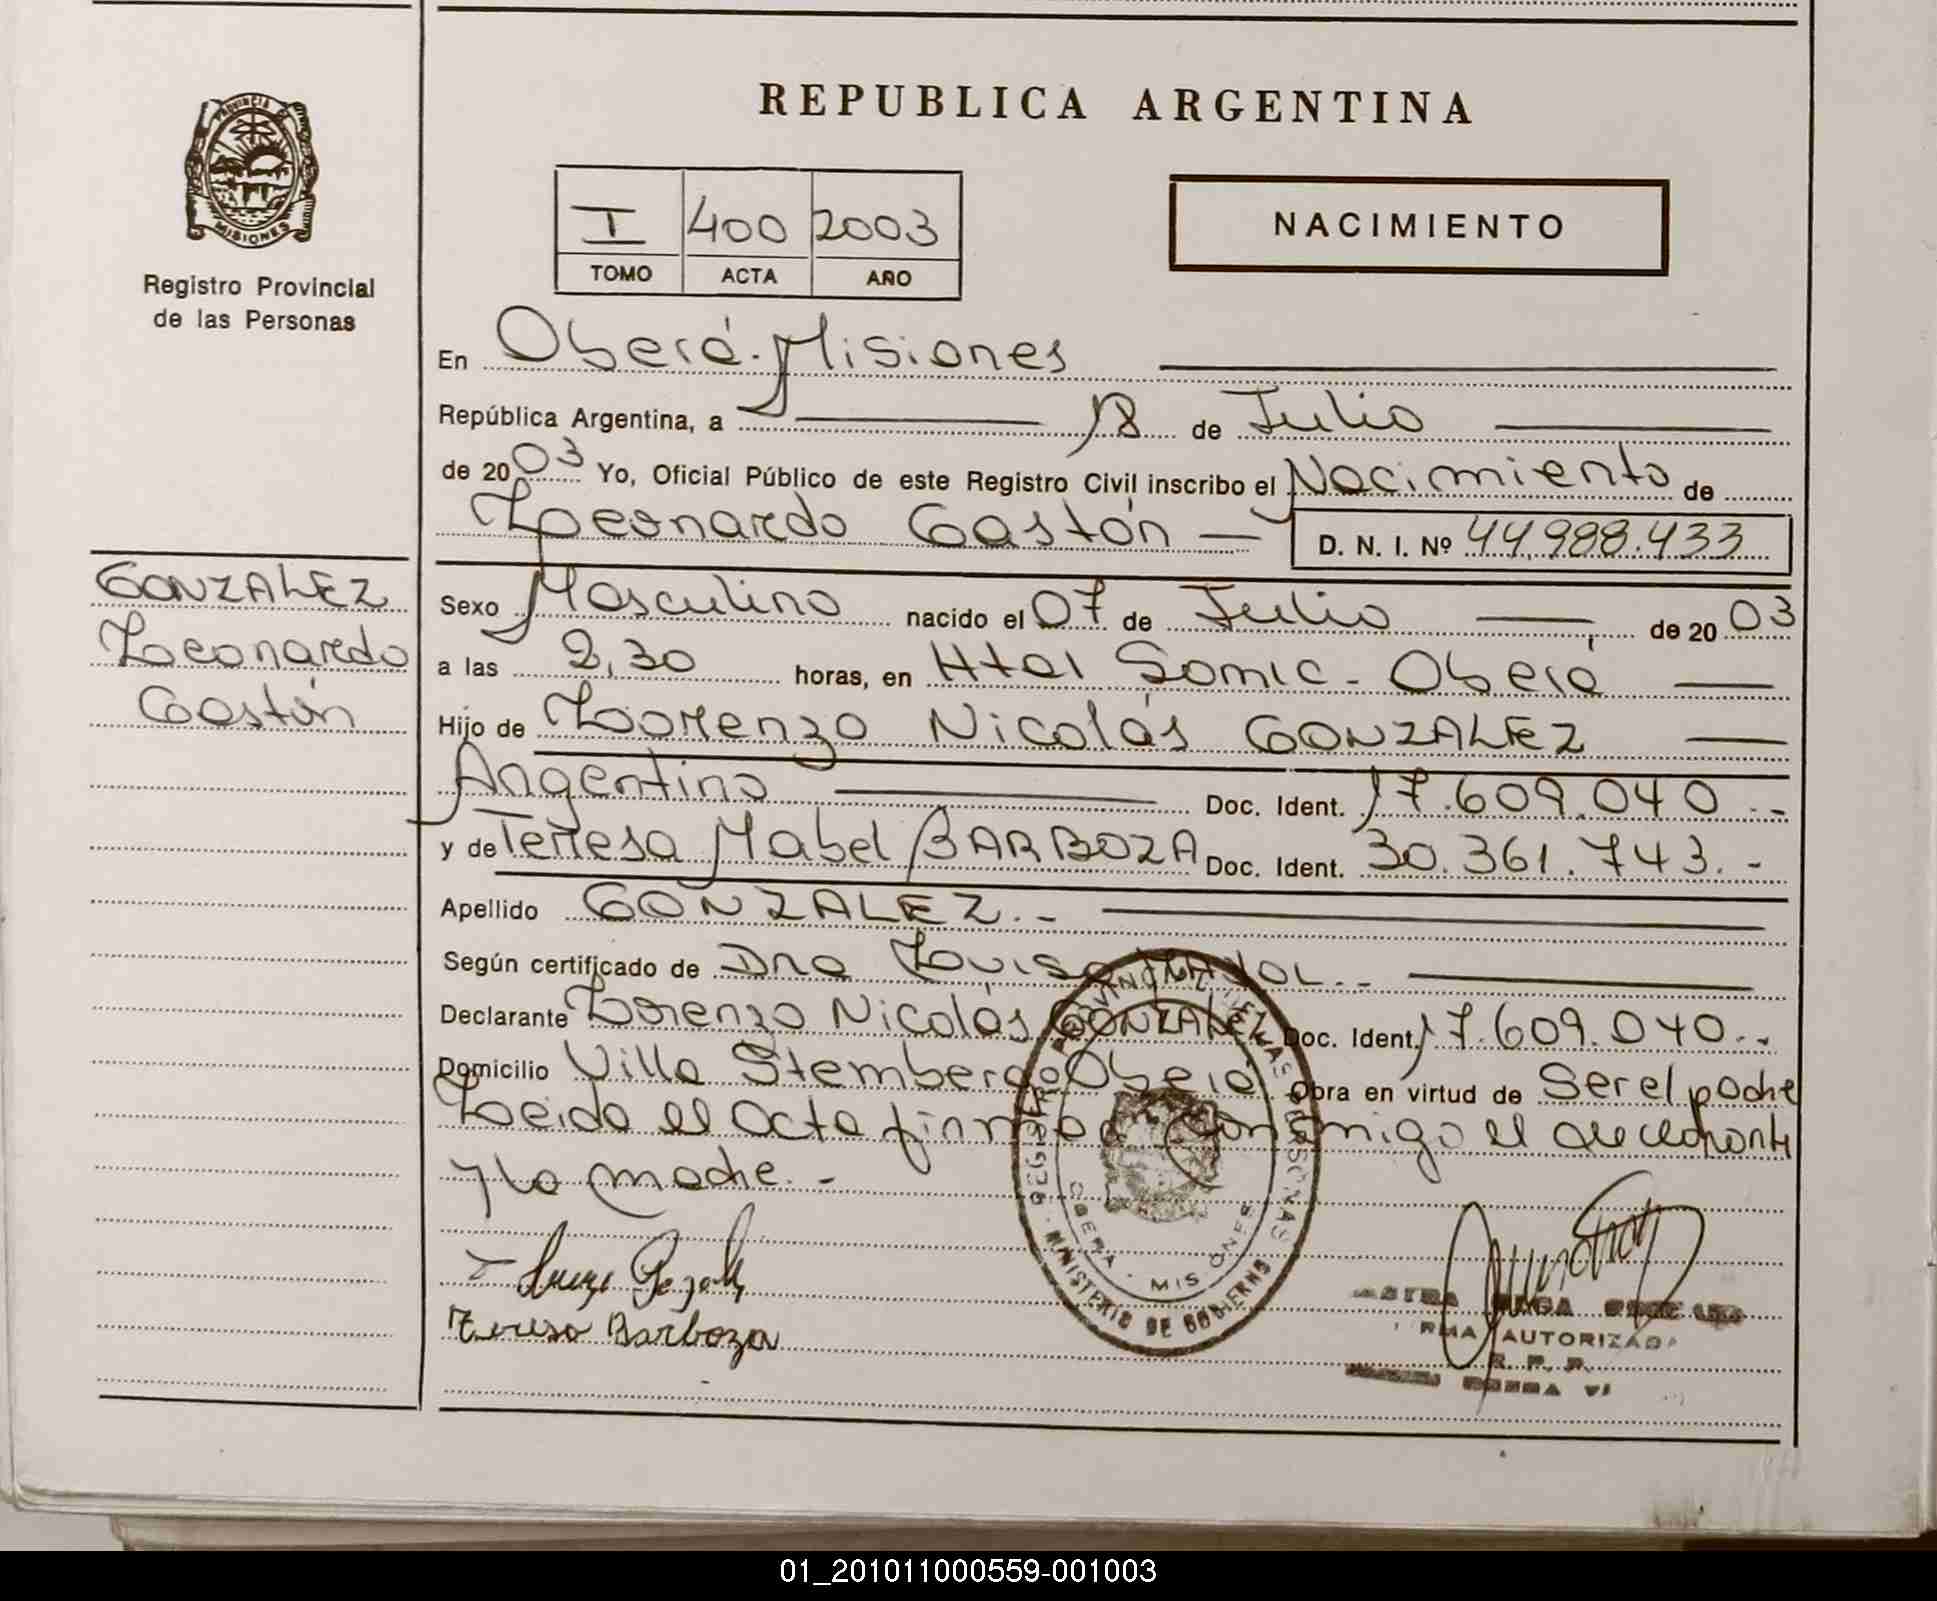 REPUBLICA ARGENTINA
PROVINCIA DE
MISIONES
Registro Provincial
de las Personas
I 400 2003
TOMO ACTA AÑO
NACIMIENTO
En Oberá - Misiones
República Argentina, a 18 de Julio
de 2003 Yo, Oficial Público de este Registro Civil inscribo el Nacimiento de
Leonardo Gastón D. N. I. Nº 44.988.433
GONZALEZ
Leonardo
Gastón
Sexo Masculino nacido el 07 de Julio de 2003
a las 2,30 horas, en Htal Samic - Oberá
Hijo de Lorenzo Nicolás GONZALEZ
Argentino Doc. Ident. 17.609.040.-
y de Teresa Mabel BARBOZA Doc. Ident. 30.361.743.-
Apellido GONZALEZ.-
Según certificado de Dra Luisa
Declarante Lorenzo Nicolás GONZALEZ Doc. Ident. 17.609.040.-
Domicilio Villa Stemberg Oberá Obra en virtud de Ser el padre
Leida el acta firma conmigo el declarante
y la madre.-
Teresa Barboza
REGISTRO PROVINCIAL DE LAS PERSONAS
OBERA - MISIONES
MINISTERIO DE GOBIERNO
FIRMA AUTORIZADA
R. P. P.
01_201011000559-001003